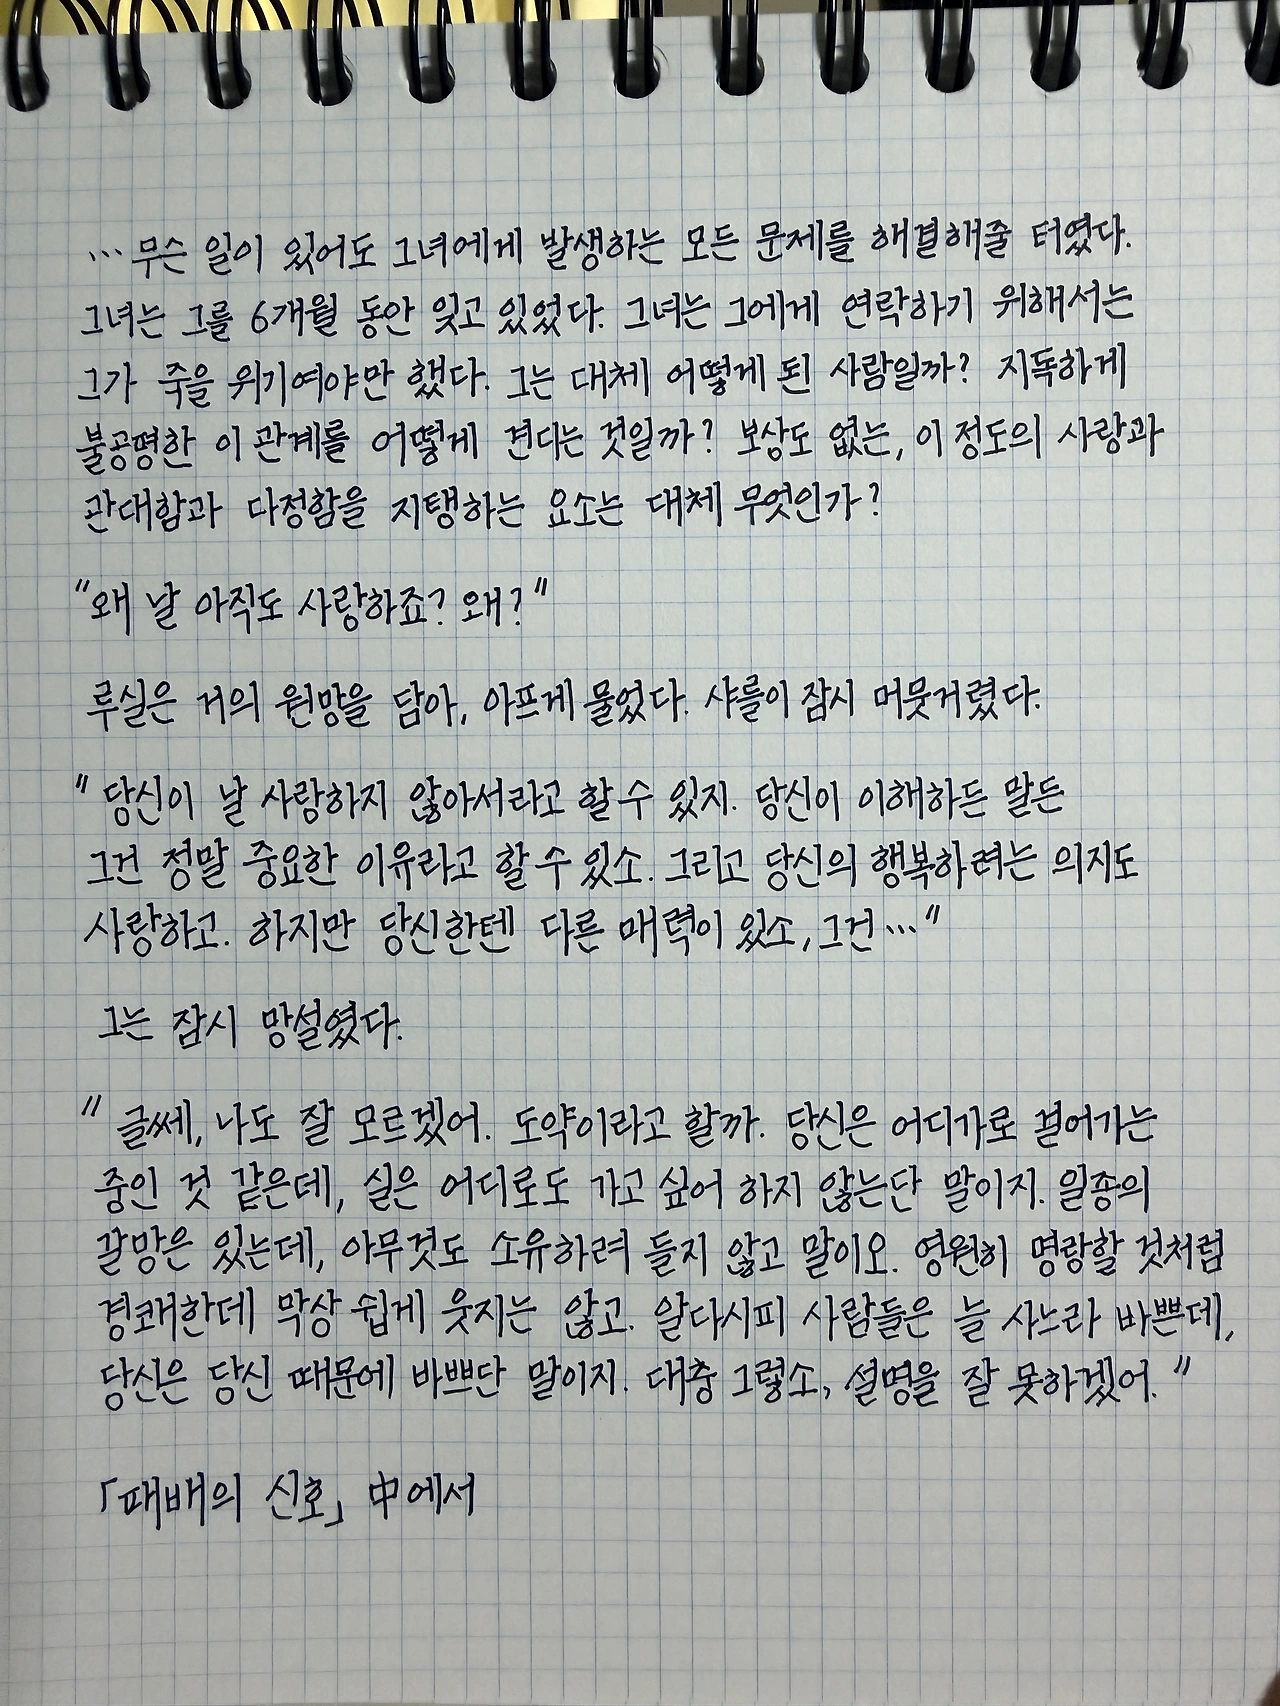 …무슨 일이 있어도 그녀에게 발생하는 모든 문제를 해결해줄 터였다.
그녀는 그를 6개월 동안 잊고 있었다. 그녀는 그에게 연락하기 위해서는
그가 죽을 위기여야만 했다. 그는 대체 어떻게 된 사람일까? 지독하게
불공평한 이 관계를 어떻게 견디는 것일까? 보상도 없는, 이 정도의 사랑과
관대함과 다정함을 지탱하는 요소는 대체 무엇인가?
"왜 날 아직도 사랑하죠? 왜?"
루실은 거의 원망을 담아, 아프게 물었다. 샤를이 잠시 머뭇거렸다.
"당신이 날 사랑하지 않아서라고 할 수 있지. 당신이 이해하든 말든
그건 정말 중요한 이유라고 할 수 있소. 그리고 당신의 행복하려는 의지도
사랑하고. 하지만 당신한텐 다른 매력이 있소, 그건…"
그는 잠시 망설였다.
"글쎄, 나도 잘 모르겠어. 도약이라고 할까. 당신은 어디가로 걸어가는
중인 것 같은데, 실은 어디로도 가고 싶어 하지 않는단 말이지. 일종의
갈망은 있는데, 아무것도 소유하려 들지 않고 말이오. 영원히 명랑할 것처럼
경쾌한데 막상 쉽게 웃지는 않고. 알다시피 사람들은 늘 사느라 바쁜데,
당신은 당신 때문에 바쁘단 말이지. 대충 그렇소, 설명을 잘 못하겠어."
「패배의 신호」 中에서